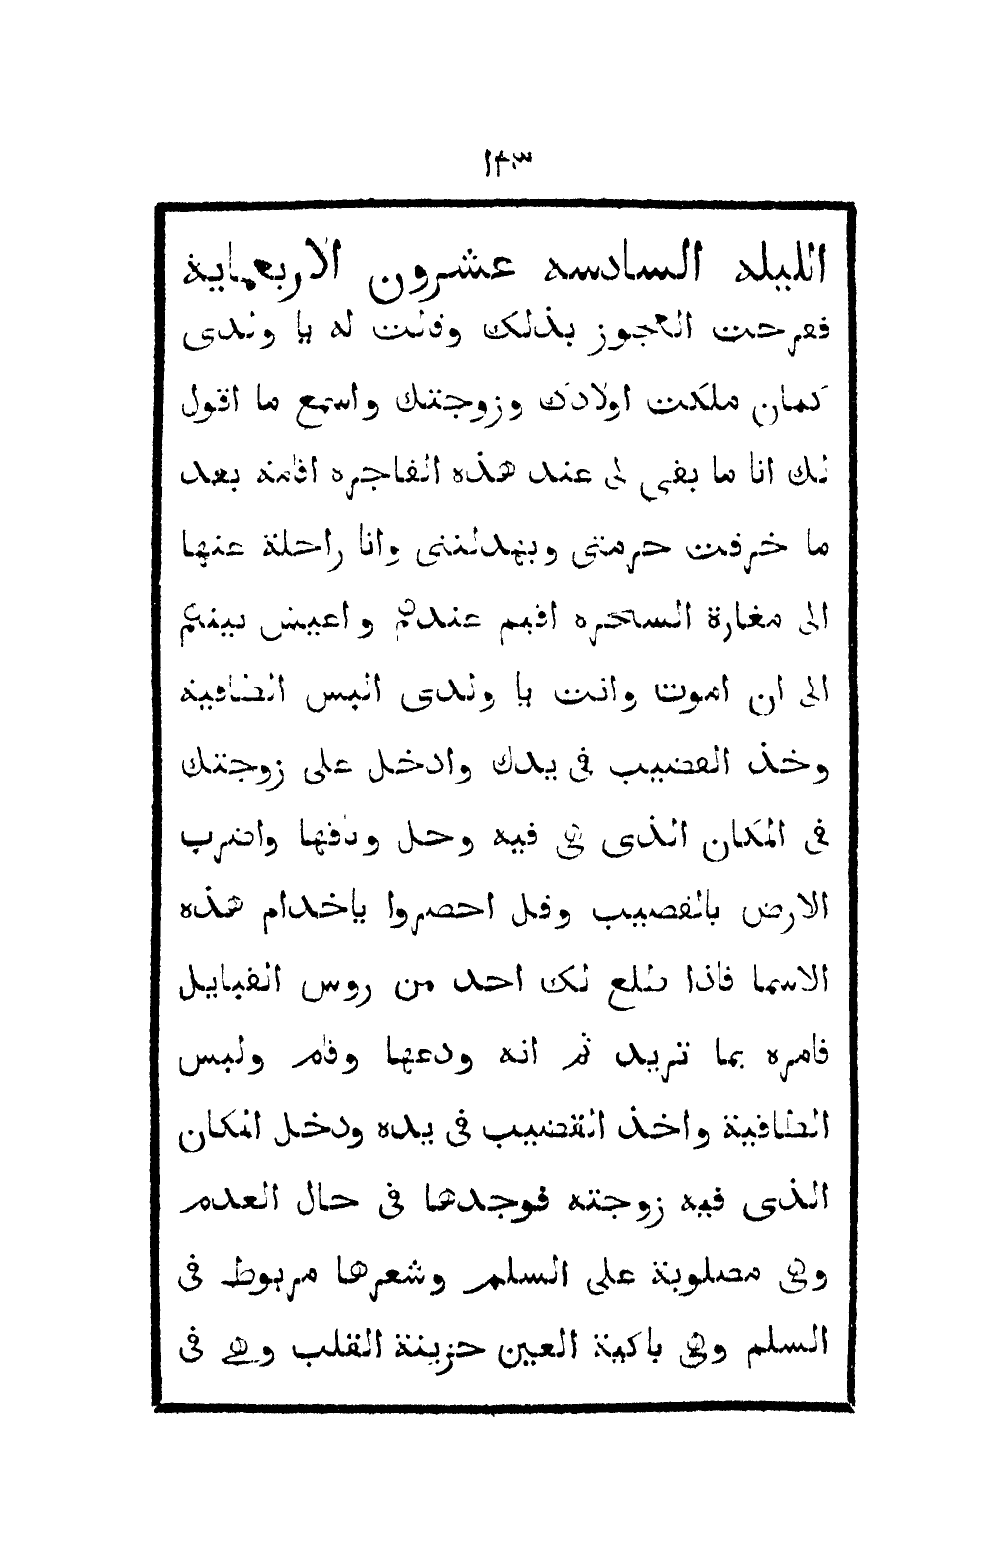 ١٤٣
الليله السادسه عشرون الاربعماية
ففرحت العجوز بذلك وقالت له يا ولدى
كمان ملكت اولادك وزوجتك واسمع ما اقول
لك انا ما بقى لى عند هذه الفاجره اقامه بعد
ما خرقت حرمتى وبهدلتنى وانا راحلة عنها
الى مغارة السحره اقيم عندهم واعيش بينهم
الى ان اموت وانت يا ولدى البس الطاقيه
وخذ القضيب فى يدك وادخل على زوجتك
فى المكان الذى هى فيه وحل وثاقها واضرب
الارض بالقضيب وقل احضروا ياخدام هذه
الاسما فاذا طلع لك احد من روس القبايل
فامره بما تريد ثم انه ودعها وقام ولبس
الطاقية واخذ القضيب فى يده ودخل المكان
الذى فيه زوجته فوجدها فى حال العدم
وهى مصلوبة على السلم وشعرها مربوط فى
السلم وهى باكية العين حزينة القلب وهى فى